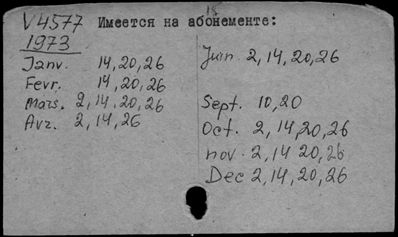 V 4577 Имеется на абонементе:
15
1973
Janv. 14, 20, 26
Fevr. 14, 20, 26
Mars. 2, 14, 20, 26
Avr. 2, 14, 26
Juin 2, 14, 20, 26
Sept. 10, 20
Oct. 2, 14, 20, 26
nov. 2, 14 20, 26
Dec 2, 14, 20, 26